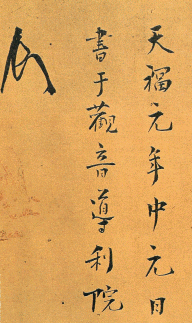 天福元年中元日
書于觀音導利院